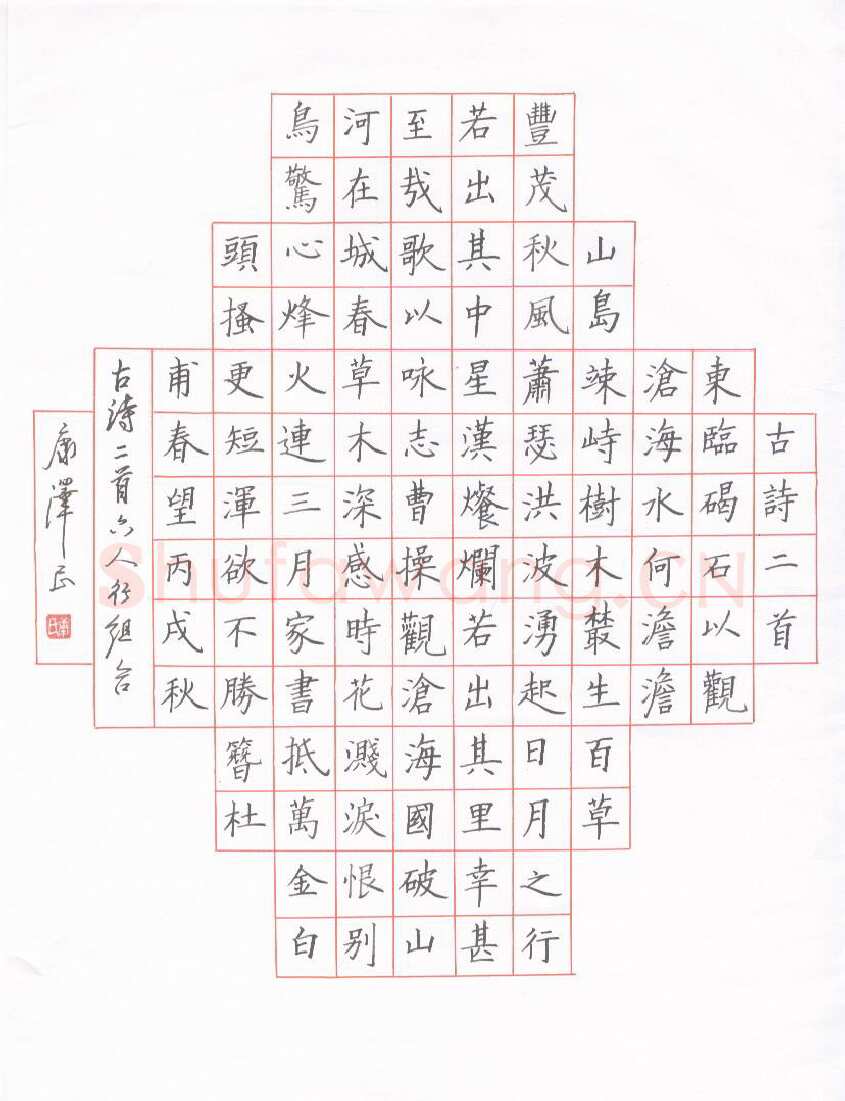 古詩二首
東臨碣石以觀
滄海水何澹澹
山島竦峙樹木叢生百草
豐茂秋風蕭瑟洪波湧起日月之行
若出其中星漢燦爛若出其里幸甚
至哉歌以咏志曹操觀滄海國破山
河在城春草木深感時花濺淚恨别
鳥驚心烽火連三月家書抵萬金白
頭搔更短渾欲不勝簪杜
甫春望丙戌秋
古詩二首六人行組合
康澤正
Shufawang.CN